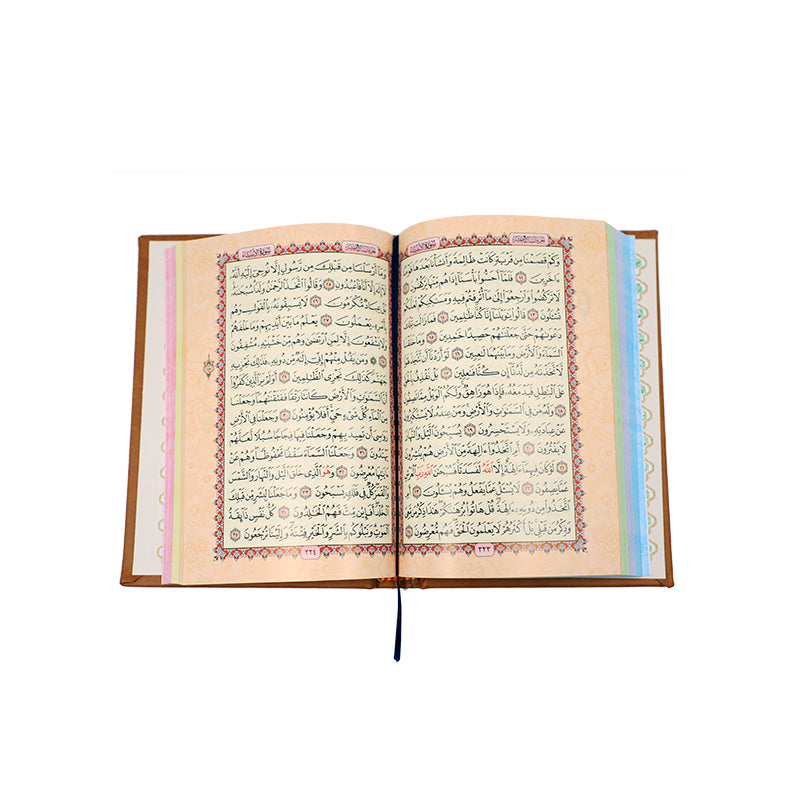 الجزء السابع عشر
سورة الأنبياء
وَكَمْ قَصَمْنَا مِن قَرْيَةٍ كَانَتْ ظَالِمَةً وَأَنشَأْنَا بَعْدَهَا قَوْمًا
ءَاخَرِينَ ١١ فَلَمَّآ أَحَسُّوا۟ بَأْسَنَآ إِذَا هُم مِّنْهَا يَرْكُضُونَ ١٢
لَا تَرْكُضُوا۟ وَٱرْجِعُوٓا۟ إِلَىٰ مَآ أُتْرِفْتُمْ فِيهِ وَمَسَٰكِنِكُمْ لَعَلَّكُمْ
تُسْـَٔلُونَ ١٣ قَالُوا۟ يَٰوَيْلَنَآ إِنَّا كُنَّا ظَٰلِمِينَ ١٤ فَمَا زَالَت تِّلْكَ
دَعْوَىٰهُمْ حَتَّىٰ جَعَلْنَٰهُمْ حَصِيدًا خَٰمِدِينَ ١٥ وَمَا خَلَقْنَا
ٱلسَّمَآءَ وَٱلْأَرْضَ وَمَا بَيْنَهُمَا لَٰعِبِينَ ١٦ لَوْ أَرَدْنَآ أَن نَّتَّخِذَ لَهْوًا
لَّٱتَّخَذْنَٰهُ مِن لَّدُنَّآ إِن كُنَّا فَٰعِلِينَ ١٧ بَلْ نَقْذِفُ بِٱلْحَقِّ
عَلَى ٱلْبَٰطِلِ فَيَدْمَغُهُۥ فَإِذَا هُوَ زَاهِقٌ وَلَكُمُ ٱلْوَيْلُ مِمَّا تَصِفُونَ
١٨ وَلَهُۥ مَن فِى ٱلسَّمَٰوَٰتِ وَٱلْأَرْضِ وَمَنْ عِندَهُۥ لَا يَسْتَكْبِرُونَ
عَنْ عِبَادَتِهِۦ وَلَا يَسْتَحْسِرُونَ ١٩ يُسَبِّحُونَ ٱلَّيْلَ وَٱلنَّهَارَ لَا
يَفْتُرُونَ ٢٠ أَمِ ٱتَّخَذُوٓا۟ ءَالِهَةً مِّنَ ٱلْأَرْضِ هُمْ يُنشِرُونَ
٢١ لَوْ كَانَ فِيهِمَآ ءَالِهَةٌ إِلَّا ٱللَّهُ لَفَسَدَتَا فَسُبْحَٰنَ ٱللَّهِ رَبِّ ٱلْعَرْشِ
عَمَّا يَصِفُونَ ٢٢ لَا يُسْـَٔلُ عَمَّا يَفْعَلُ وَهُمْ يُسْـَٔلُونَ ٢٣
أَمِ ٱتَّخَذُوا۟ مِن دُونِهِۦٓ ءَالِهَةً قُلْ هَاتُوا۟ بُرْهَٰنَكُمْ هَٰذَا ذِكْرُ مَن مَّعِىَ
وَذِكْرُ مَن قَبْلِى بَلْ أَكْثَرُهُمْ لَا يَعْلَمُونَ ٱلْحَقَّ فَهُم مُّعْرِضُونَ ٢٤
٣٢٣
الجزء السابع عشر
سورة الأنبياء
وَمَآ أَرْسَلْنَا مِن قَبْلِكَ مِن رَّسُولٍ إِلَّا نُوحِىٓ إِلَيْهِ أَنَّهُۥ
لَآ إِلَٰهَ إِلَّآ أَنَا۠ فَٱعْبُدُونِ ٢٥ وَقَالُوا۟ ٱتَّخَذَ ٱلرَّحْمَٰنُ وَلَدًا سُبْحَٰنَهُۥ
بَلْ عِبَادٌ مُّكْرَمُونَ ٢٦ لَا يَسْبِقُونَهُۥ بِٱلْقَوْلِ وَهُم
بِأَمْرِهِۦ يَعْمَلُونَ ٢٧ يَعْلَمُ مَا بَيْنَ أَيْدِيهِمْ وَمَا خَلْفَهُمْ
وَلَا يَشْفَعُونَ إِلَّا لِمَنِ ٱرْتَضَىٰ وَهُم مِّنْ خَشْيَتِهِۦ مُشْفِقُونَ
٢٨ وَمَن يَقُلْ مِنْهُمْ إِنِّىٓ إِلَٰهٌ مِّن دُونِهِۦ فَذَٰلِكَ نَجْزِيهِ
جَهَنَّمَ كَذَٰلِكَ نَجْزِى ٱلظَّٰلِمِينَ ٢٩ أَوَلَمْ يَرَ ٱلَّذِينَ كَفَرُوٓا۟
أَنَّ ٱلسَّمَٰوَٰتِ وَٱلْأَرْضَ كَانَتَا رَتْقًا فَفَتَقْنَٰهُمَا وَجَعَلْنَا
مِنَ ٱلْمَآءِ كُلَّ شَىْءٍ حَىٍّ أَفَلَا يُؤْمِنُونَ ٣٠ وَجَعَلْنَا فِى ٱلْأَرْضِ
رَوَٰسِىَ أَن تَمِيدَ بِهِمْ وَجَعَلْنَا فِيهَا فِجَاجًا سُبُلًا لَّعَلَّهُمْ
يَهْتَدُونَ ٣١ وَجَعَلْنَا ٱلسَّمَآءَ سَقْفًا مَّحْفُوظًا وَهُمْ عَنْ
ءَايَٰتِهَا مُعْرِضُونَ ٣٢ وَهُوَ ٱلَّذِى خَلَقَ ٱلَّيْلَ وَٱلنَّهَارَ وَٱلشَّمْسَ
وَٱلْقَمَرَ كُلٌّ فِى فَلَكٍ يَسْبَحُونَ ٣٣ وَمَا جَعَلْنَا لِبَشَرٍ مِّن قَبْلِكَ
ٱلْخُلْدَ أَفَإِي۟ن مِّتَّ فَهُمُ ٱلْخَٰلِدُونَ ٣٤ كُلُّ نَفْسٍ ذَآئِقَةُ
ٱلْمَوْتِ وَنَبْلُوكُم بِٱلشَّرِّ وَٱلْخَيْرِ فِتْنَةً وَإِلَيْنَا تُرْجَعُونَ ٣٥
٣٢٤